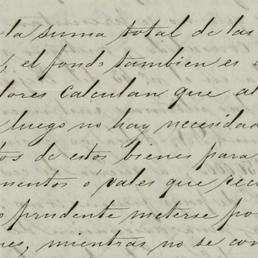 la suma total de las
, el fondo tambien es
dores calculan que al
luego no hay necesidad
tos de estos bienes para
mentos ó vales que rec
s prudente meterse po
nes, mientras no se con